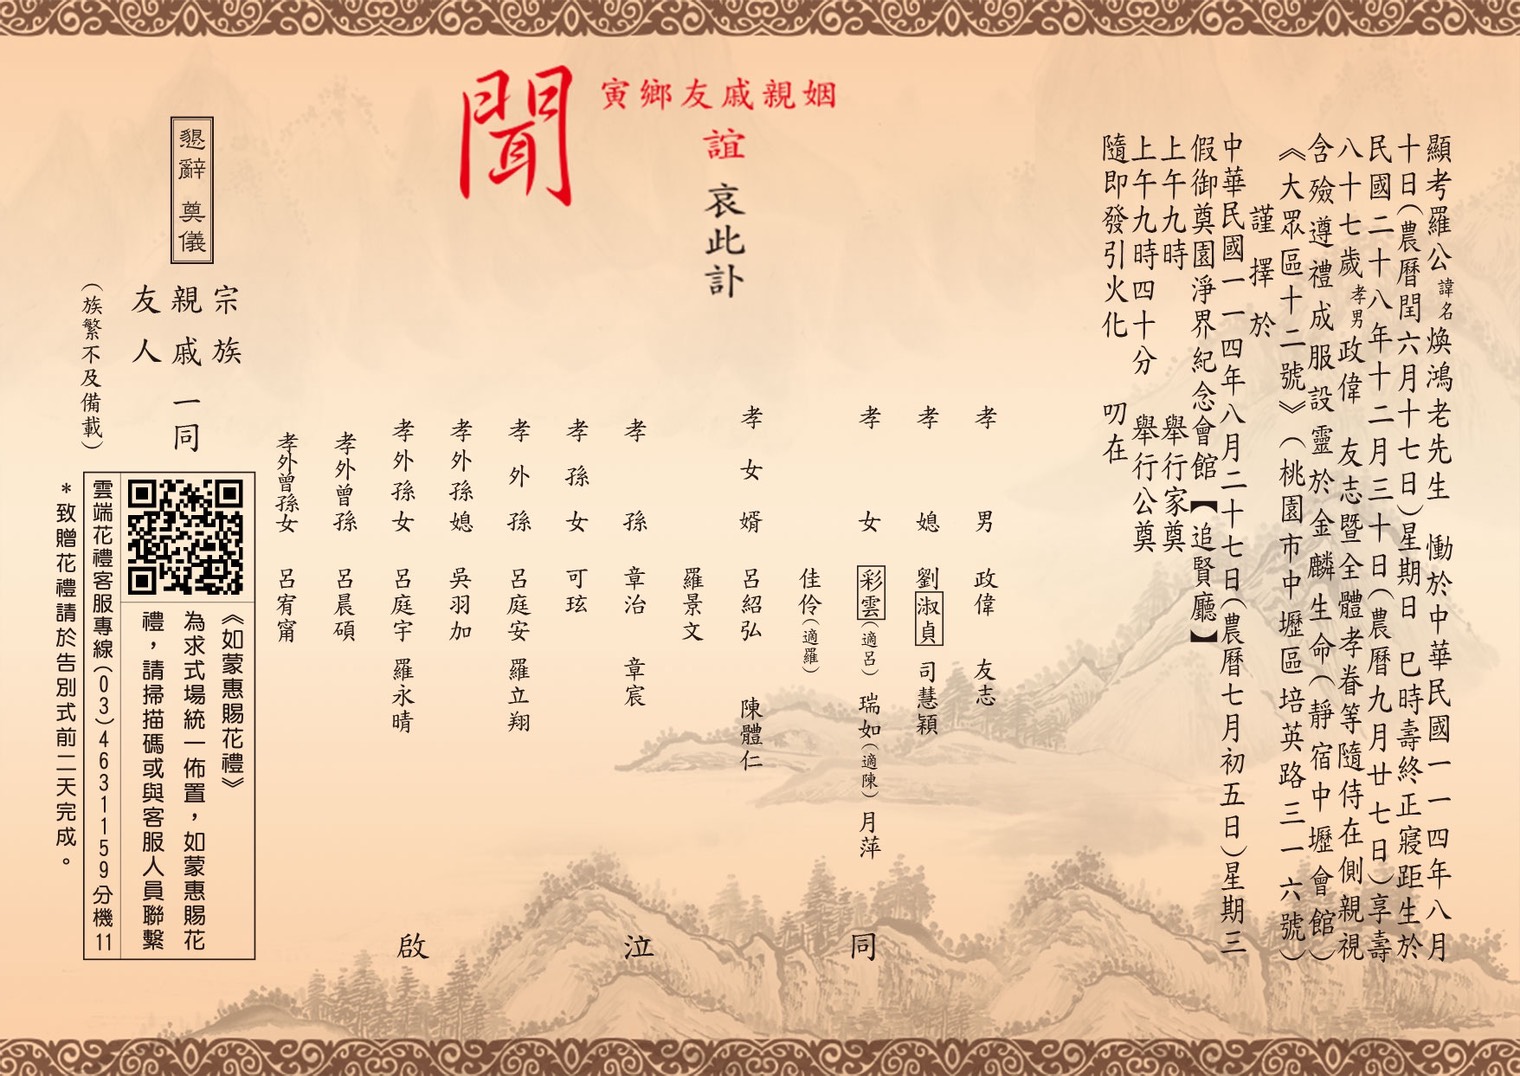 顯考羅公諱名煥鴻老先生　慟於中華民國一一四年八月
十日(農曆閏六月十七日)星期日　巳時壽終正寢距生於
民國二十八年十二月三十日(農曆九月廿七日)享壽
八十七歲孝男政偉　友志暨全體孝眷等隨侍在側親視
含殮遵禮成服設靈於金麟生命(靜宿中壢會館)
《大眾區十二號》(桃園市中壢區培英路三一六號)
謹擇於
中華民國一一四年八月二十七日(農曆七月初五日)星期三
假御奠園淨界紀念會館【追賢廳】
上午九時　舉行家奠
上午九時四十分　舉行公奠
隨即發引火化　叨在
姻親戚友鄉寅
誼　哀此訃
聞
孝男　政偉　友志
孝媳　劉淑貞　司慧穎
孝女　彩雲(適呂)　瑞如(適陳)　月萍
佳伶(適羅)
孝女婿　呂紹弘　陳體仁
羅景文
孝孫　章治　章宸
孝孫女　可玹
孝外孫　呂庭安　羅立翔
孝外孫媳　吳羽加
孝外孫女　呂庭宇　羅永晴
孝外曾孫　呂晨碩
孝外曾孫女　呂宥甯
同　泣　啟
宗族
親戚一同
友人
(族繁不及備載)
懇辭　奠儀
《如蒙惠賜花禮》
為求式場統一佈置，如蒙惠賜花
禮，請掃描碼或與客服人員聯繫
雲端花禮客服專線(03)4631159分機11
＊致贈花禮請於告別式前二天完成。